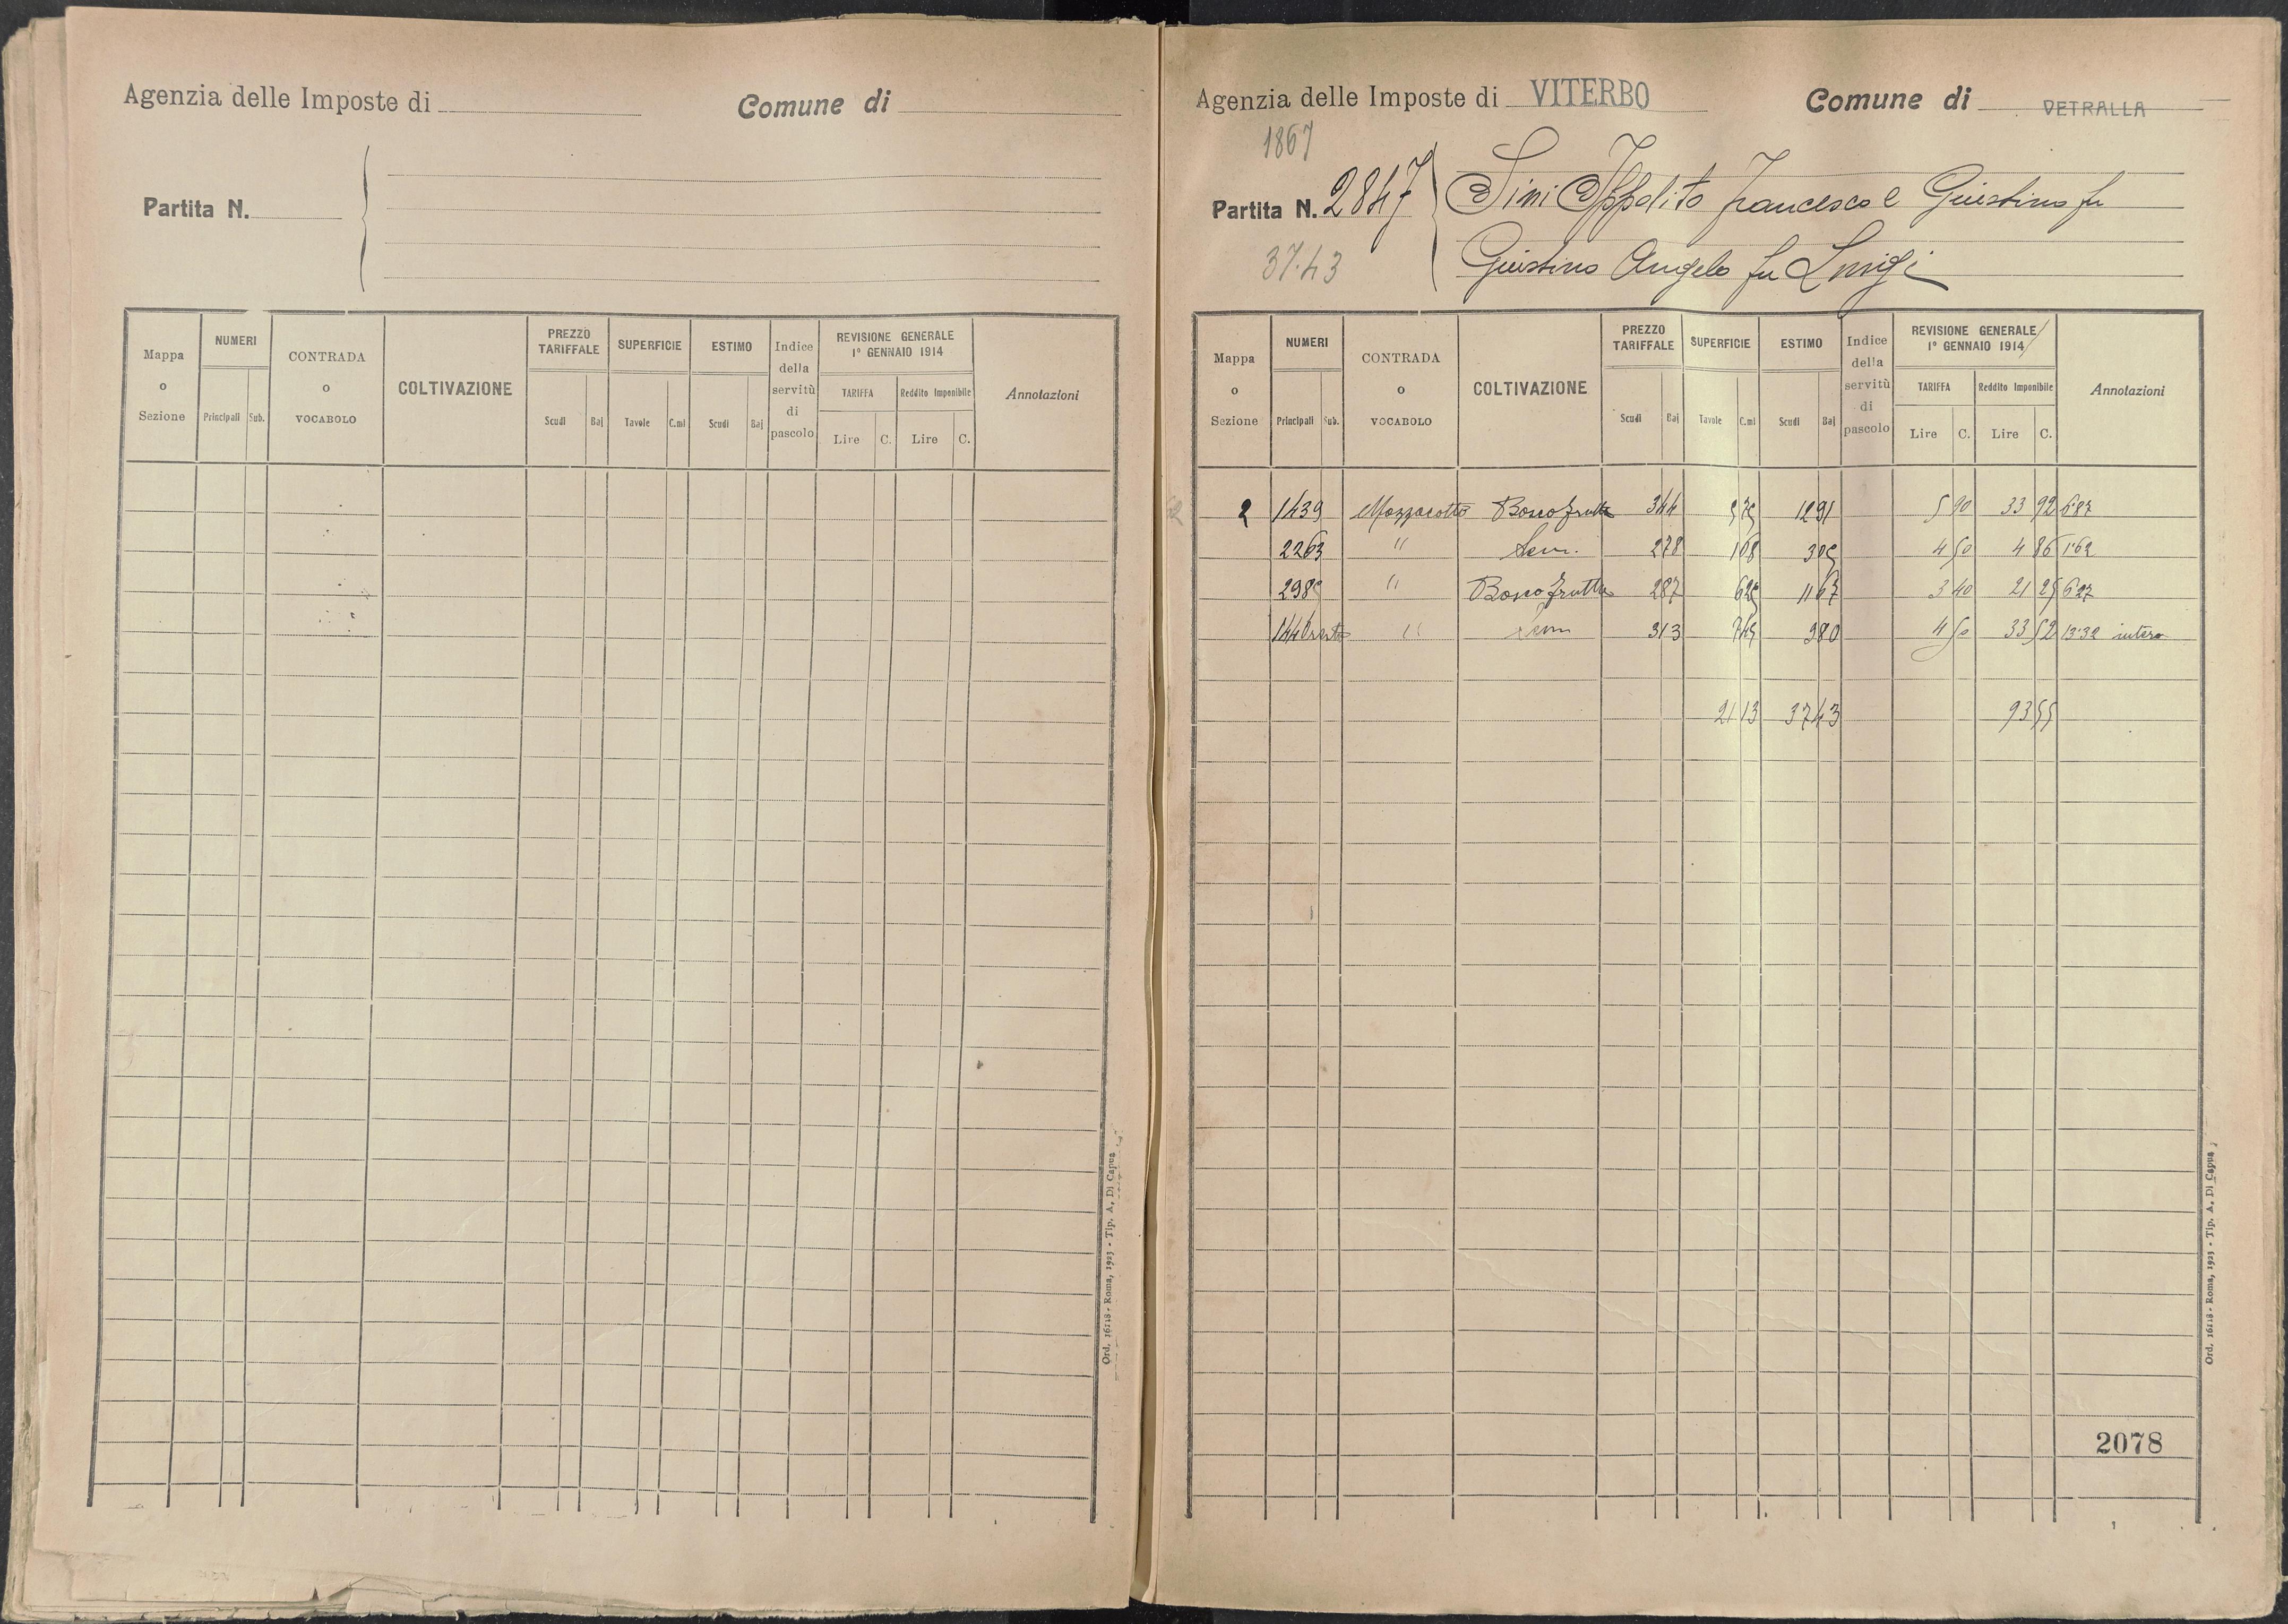 Agenzia delle Imposte di
Comune di
Partita N.
Mappa o Sezione
NUMERI
Principali Sub.
CONTRADA o VOCABOLO
COLTIVAZIONE
PREZZO TARIFFALE
Scudi Baj
SUPERFICIE
Tavole C.mi
ESTIMO
Scudi Baj
Indice della servitù di pascolo
REVISIONE GENERALE
1° GENNAIO 1914
TARIFFA
Lire C.
Reddito Imponibile
Lire C.
Annotazioni
Ord. 16118 - Roma, 1923 - Tip. A. Di Capua
Agenzia delle Imposte di VITERBO
Comune di VETRALLA
1867
Partita N. 2847
37.43
Sini Ippolito Francesco e Giustino fu
Giustino Angelo fu Luigi
Mappa o Sezione
NUMERI
Principali Sub.
CONTRADA o VOCABOLO
COLTIVAZIONE
PREZZO TARIFFALE
Scudi Baj
SUPERFICIE
Tavole C.mi
ESTIMO
Scudi Baj
Indice della servitù di pascolo
REVISIONE GENERALE
1° GENNAIO 1914
TARIFFA
Lire C.
Reddito Imponibile
Lire C.
Annotazioni
2 1439 Mazzacotto Bosco frutto 344 575 1291 5 90 33 92 6.87
2263 " Sem. 278 108 305 4 50 4 86 1.62
2985 " Bosco frutto 287 625 1167 3 40 21 25 6.27
1440 resto " Sem 313 745 980 4 50 33 52 13.32 intero
21 13 3743 93 55
2078
Ord. 16118 - Roma, 1923 - Tip. A. Di Capua